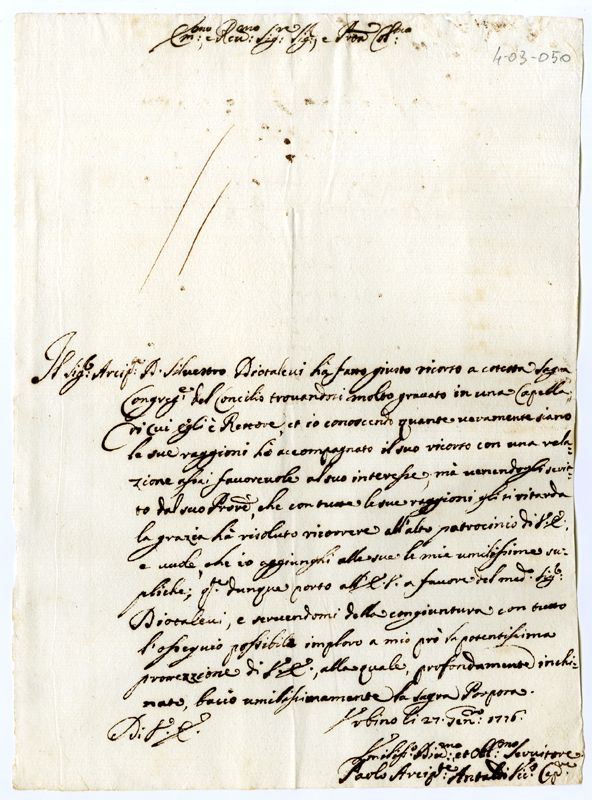 Em.mo e Rev.mo Sig.re Sig.re, e Pron Col.mo
4-03-050
Il Sig.r Arcip.e D. Silvestro Diotalevi hà fatto giusto ricorso a cotesta Sagra
Congreg.e del Concilio trovandosi molto gravato in una Capella
di cui egli è Rettore, et io conoscendo quante veramente siano
le sue raggioni hò accompagnato il suo ricorso con una rela-
zione assai favorevole al suo interesse, mà venendogli scrit-
to dal suo Proved.e, che con tutte le sue raggioni gli si ritarda
la grazia hà risoluto ricorrere all'alto patrocinio di V.E.
e vuole, che io aggiunghi alle sue le mie umilissime su-
pliche; q.te dunque porto all'E.V. a favore del med.o Sig.r
Diotalevi, e servendomi della congiuntura con tutto
l'ossequio possibile imploro a mio prò la potentissima
protezzione di V.E., alla quale, profondamente inchi-
nato, bacio umilissimamente la sagra Porpora.
Di V.E. Urbino li 27 Gen.o 1776.
Umiliss.o Div.mo et Obl.mo Servitore
Paolo Arcip.e Antaldi Vic.o Cap.e